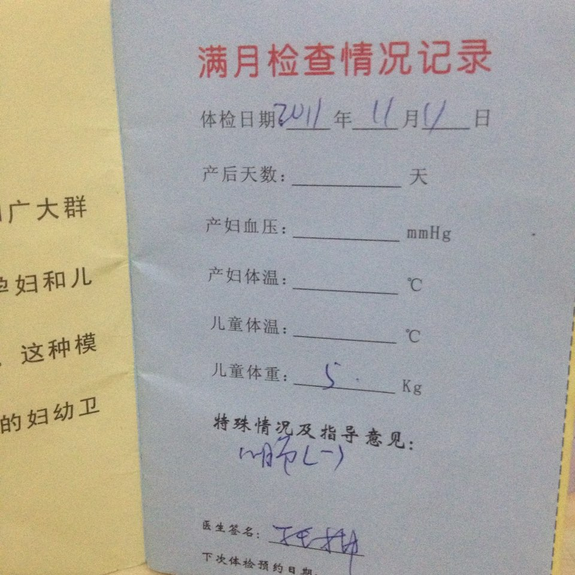 广大群
孕妇和儿
这种模
的妇幼卫
满月检查情况记录
体检日期:2011年11月11日
产后天数:天
产妇血压:mmHg
产妇体温:℃
儿童体温:℃
儿童体重:5.Kg
特殊情况及指导意见:
(一)
医生签名:
下次体检预约日期: